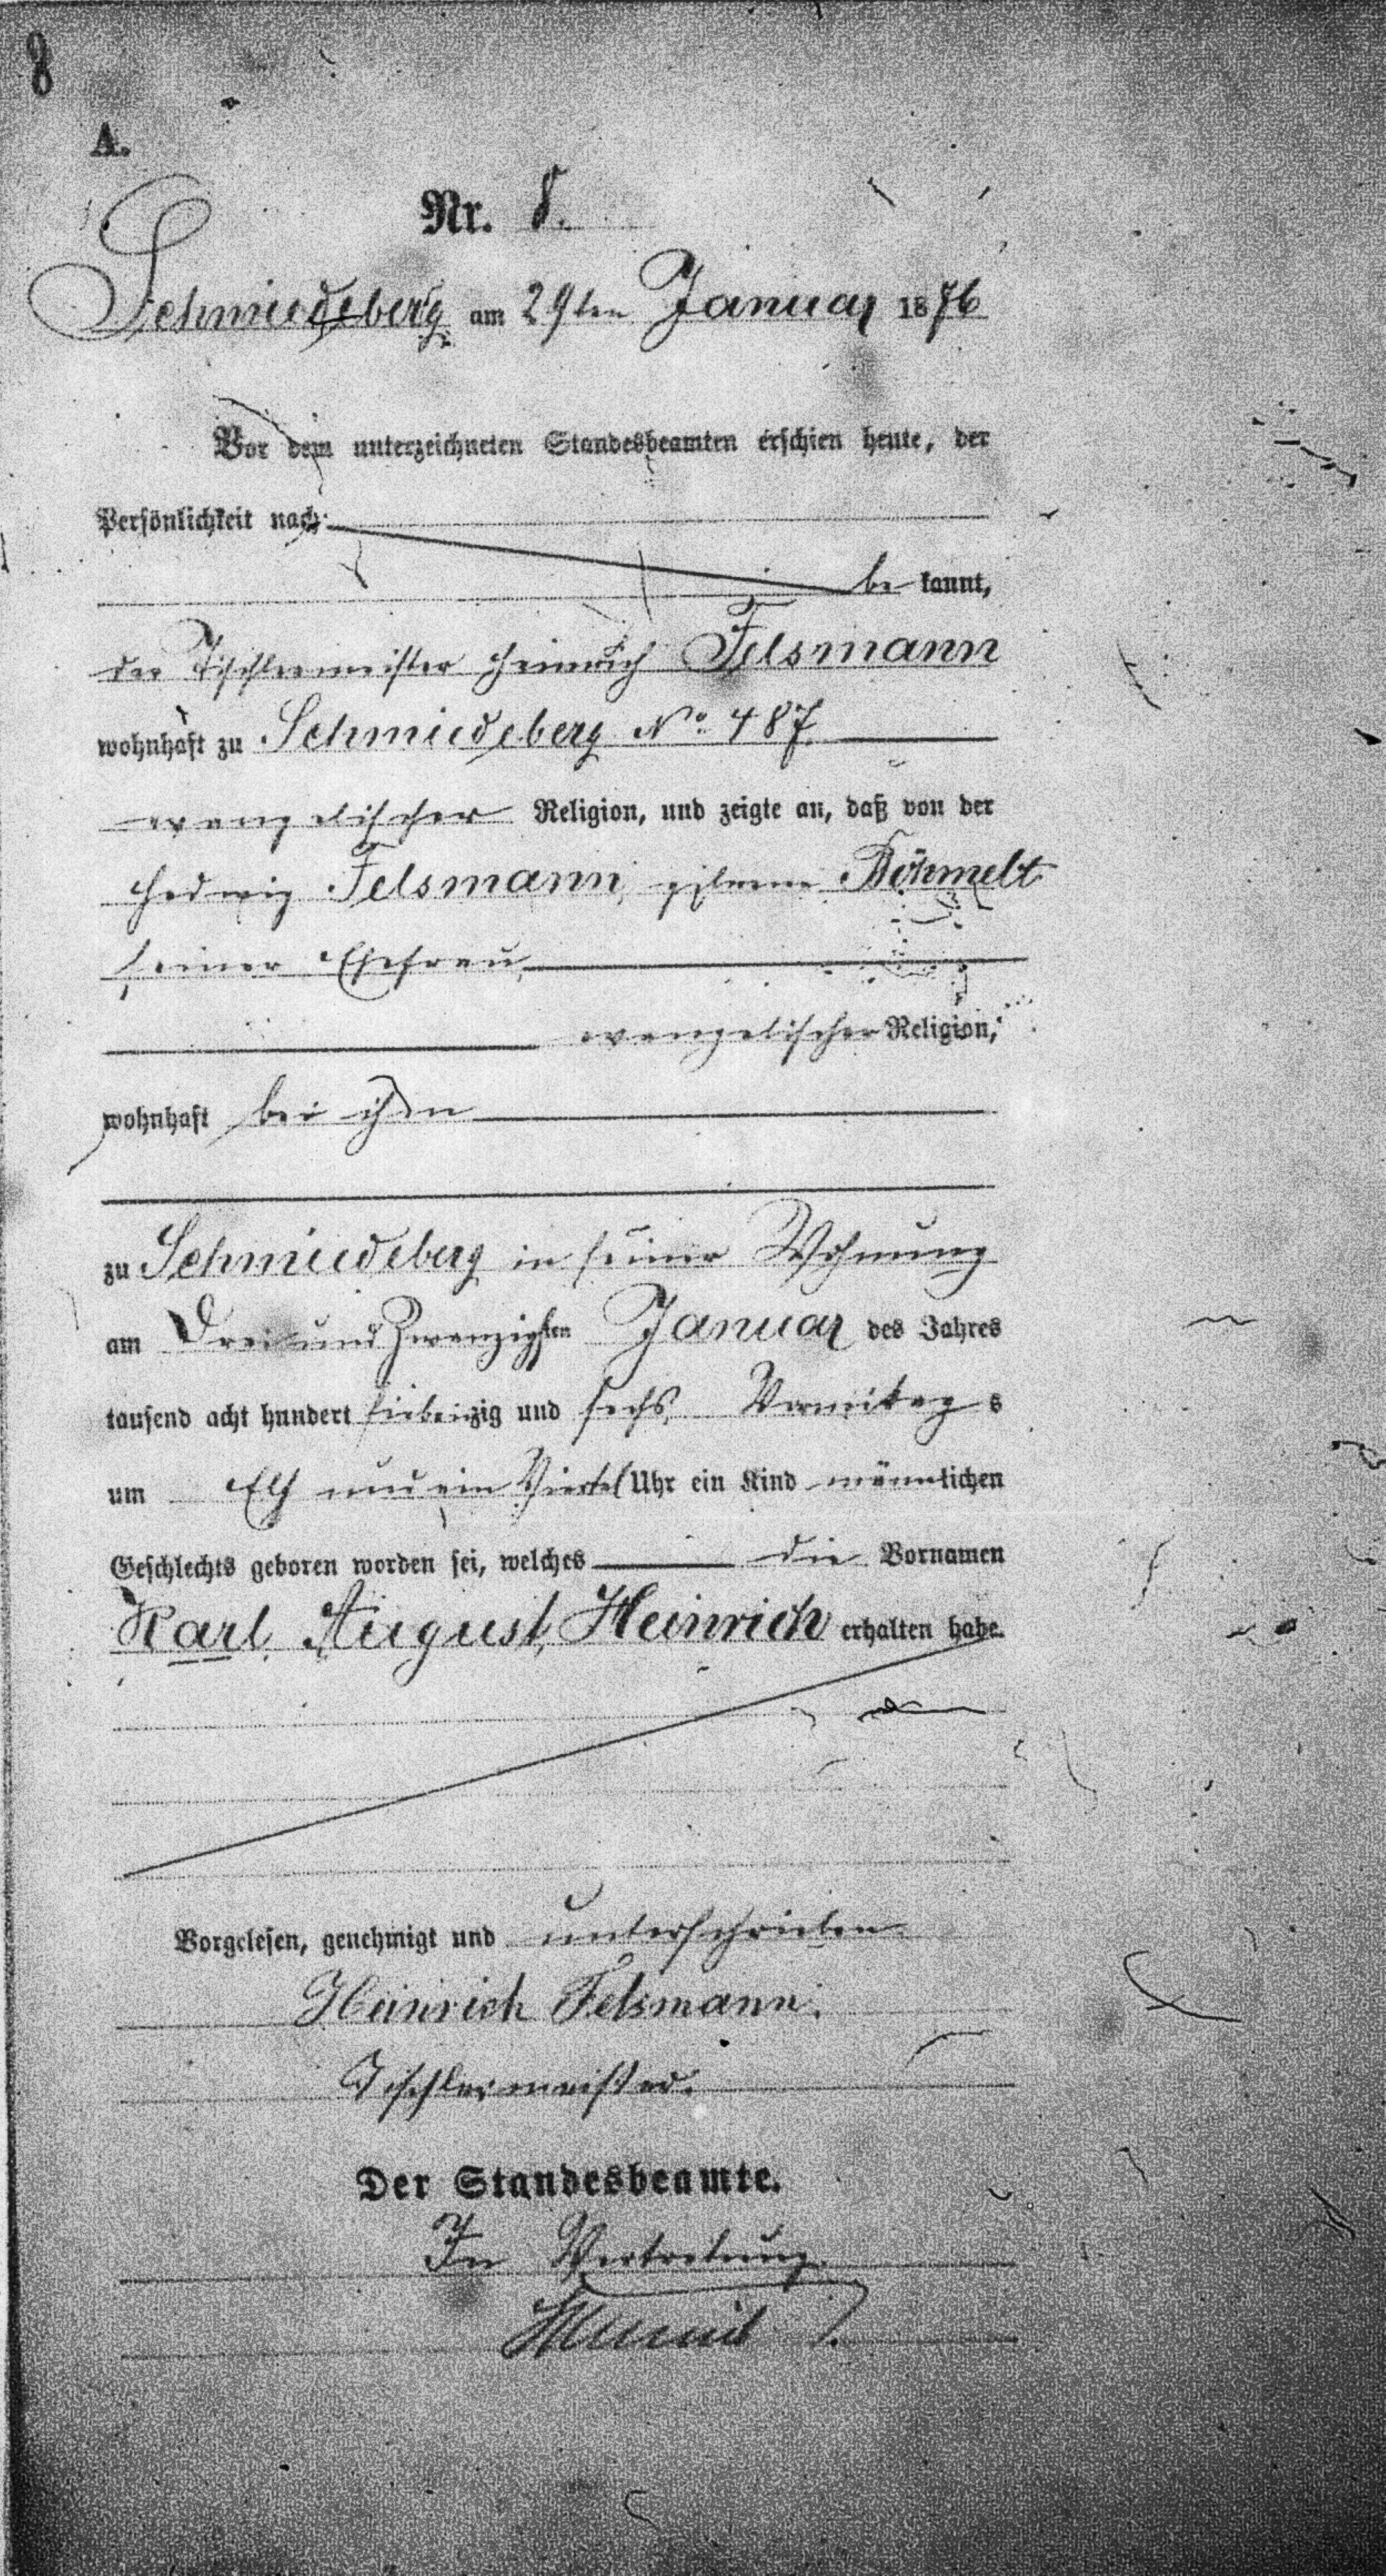 8
A.
Nr. 8.
Schmiedeberg am 29ten Januar 1876
Vor dem unterzeichneten Standesbeamten erschien heute, der
Persönlichkeit nach
be kannt,
der Tischlermeister Heinrich Felsmann
wohnhaft zu Schmiedeberg No. 487.
evangelischer Religion, und zeigte an, daß von der
Hedwig Felsmann, geborene Böhmelt
seiner Ehefrau,
evangelischer Religion,
wohnhaft bei ihm
zu Schmiedeberg in seiner Wohnung
am Drei und Zwanzigsten Januar des Jahres
tausend acht hundert siebenzig und sechs, Vormittag s
um Elf und ein Viertel Uhr ein Kind männlichen
Geschlechts geboren worden sei, welches die Vornamen
Karl, August, Heinrich erhalten habe.
Vorgelesen, genehmigt und unterschrieben.
Heinrich Felsmann.
Tischlermeister.
Der Standesbeamte.
In Vertretung.